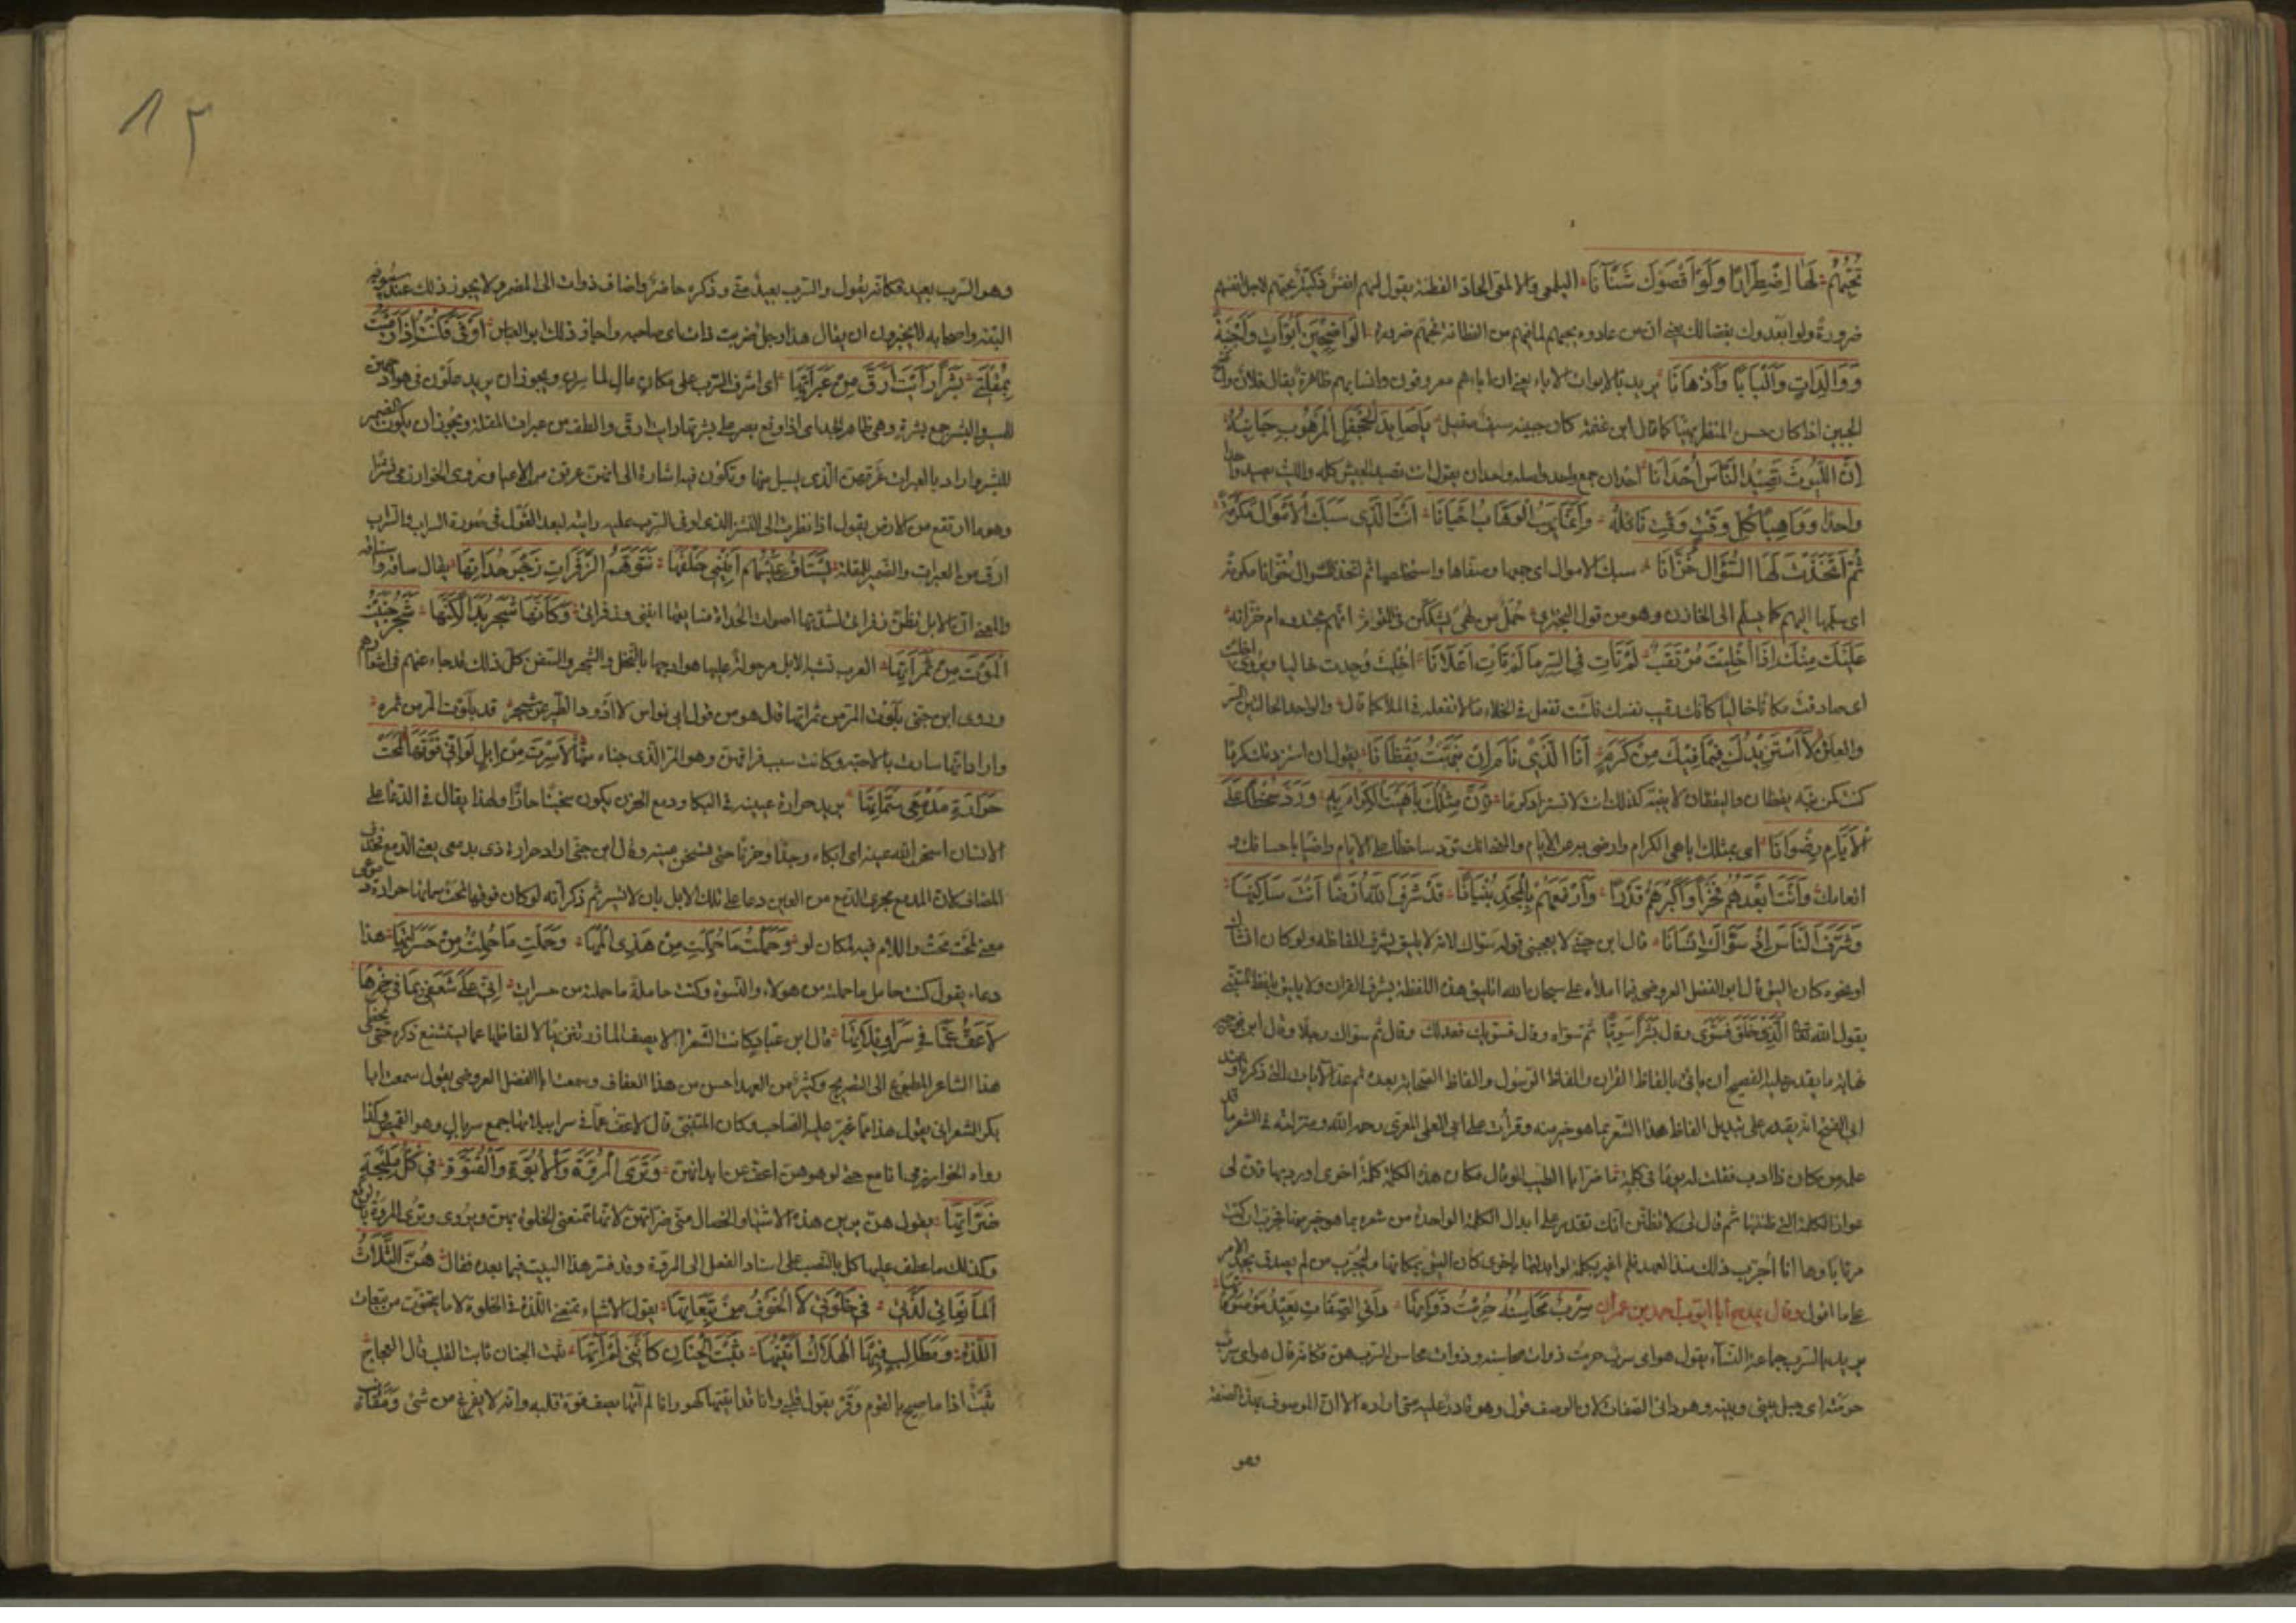 تحبهم لها اضطرارًا ولو اقصوك شنآنا اليلمعي والالمعي الحاد الفطنة يقول لهم انفس ذكية تحبهم لاجل انفسهم
ضرورة ولو ابعدوك بغضا لك يعني ان من عادوه يحبهم لما فيهم من الفطانة فحبهم ضرورة الواضحين ابوّات واجبنة
ووالدات والبابا واذهانا يريد بالابوات الاباء يعني ان اباءهم معروفون وانسابهم ظاهرة يقال فلان واضح
الجبين اذا كان حسن المنظر بهيا كما قال ابن عنمة كان جبينه سيف صقيل يا صايد الجحفل المرهوب جانبه
ان الليوث تصيد الناس احدانا احدان جمع واحد واصله وحدان يقول انت تصيد الجيش كله والليث يصيد واحدًا
واحدا وواهبا كل وقت وقت نائله وانما يهب الوهاب احيانا انت الذي سبك الاموال مكرمة
ثم اتخذت لها السؤال خزانا سبك الاموال اي جمعها وصفاها واستخلصها ثم اتخذ السوال خزانا مكرمة
اي سلمها اليهم كما يسلم الى الخازن وهو من قول البحتري
عليك منك اذا اخليت مرتقب لم تات في السر ما لم تات اعلانا اخليت وجدت خاليا ويروى اخليت
اي صادفت مكانا خاليا كانك رقيب نفسك فلست تفعل في الخلاء ما لا تفعله في الملا كما قال والواحد الحالتين السر
والعلن لا استزيدك فيما فيك من كرم انا الذي نام ان نبهت يقظانا يقول ان استزدتك كرما
كنت كمن نبه يقظان واليقظان لا ينبه كذلك انت لا تستزاد كرما فان مثلك باهيت الكرام به ورد سخطا على
الايام رضوانا اي بمثلك اباهي الكرام وارضى به عن الايام
انعامك وانت ابعدهم فخرا واكبرهم قدرا وارفعهم في المجد بنيانا قد شرف الله ارضا انت ساكنها
وشرف الناس اذ سوّاك انسانا قال ابن جني لا يعجبني قوله سوّاك لانه لا يليق بشرف الفاظه ولو كان انشاك
او نحوه كان اليق قال ابو الفضل العروضي فيما املاه علي سبحان الله اتليق هذه اللفظة بشرف القران ولا يليق بلفظ المتنبي
يقول الله تعالى الذي خلق فسوّى وقال بشرا سويا ثم سوّاه وقال فسوّيك فعدلك وقال ثم سوّاك رجلا وقال ابن فورجه
نهاية ما يقدر عليه الفصيح ان ياتي بالفاظ القران والفاظ الرسول والفاظ الصحابة بعده ثم عد الايات التي ذكرنا وعند
ابي الفتح انه يقدر على تبديل الفاظ هذا الشعر بما هو خير منه وقرات على ابي العلاء المعري رحمه الله ومنزلته في الشعر ما قد
علمه من كان ذا ادب فقلت له يوما في كلمة ما ضر ابا الطيب لو قال مكان هذه الكلمة كلمة اخرى اوردتها فابان لي
عوار الكلمة التي ظننتها ثم قال لي لا تظنن انك تقدر على ابدال الكلمة الواحدة من شعره بما هو خير منها فجرب ان كنت
مرتابا وها انا اجرب ذلك منذ العهد فلم اعثر بكلمة لو ابدلتها باخرى كان اليق بمكانها وليجرب من لم يصدق يجد الامر
على ما اقول وقال يمدح ابا ايوب احمد بن عمران سرب محاسنه حرمت ذواتها داني الصفات بعيد موصوفاتها
يريد بالسرب جماعة النساء يقول هواي سرب حرمت ذوات محاسنه وذوات محاسن السرب هن فكانه قال هواي سرب
حرمته اي حيل بيني وبينه وهو داني الصفات لان الوصف قول وهو قادر عليه متى اراده الا ان الموصوف بهذه الصفة
وهو
١٣
وهو السرب بعيد فكانه يقول والسرب بعيد مني وذكره حاضر واضاف ذوات الى المضمر ولا يجوز ذلك عند سيبويه
البتة واصحابه لا يجيزون ان يقال هذا رجل ضربت ذاته اي صاحبه واجاز ذلك ابو العباس اوفى فكنت اذا رميت
بمقلتي بشرا رايت ارق من عبراتها اي اشرف السرب على مكان عال لما سرن ويجوز ان يريد علون في هوادجهن
للسير والبشر جمع بشرة وهي ظاهر الجلد اي اذا وقع بصري على بشرتها رايت ارق والطف من عبرات المقلة ويجوز ان يكون الضمير
للبشر واراد بالعبرات عرقهن الذي يسيل منها وتكون فيه اشارة الى انهن عرقن من الاعيا ويروي الخوارزمي نشزا
وهو ما ارتفع من الارض يقول اذا نظرت الى النشز الذي اوفى السرب عليه رايته لبعد القول في صورة السراب والسراب
ارق من العبرات والضمير للمقلة يستاق عيسهم انيني خلفها تتوهم الزفرات زجر حداتها يقال ساقه واستاقه
والمعنى ان الابل تظن زفراتي لشدتها اصوات الحداة فسايقها انيني وزفراتي وكانها شجر بدا لكنها شجر جنيت
الموت من ثمراتها العرب تشبه الابل مرحولة عليها هوادجها بالنخل والشجر والسفن كل ذلك قد جاء عنهم في اشعارهم
وروى ابن جني بلوت المر من ثمراتها قال هو من قول ابي نواس لا اذود الطير عن شجر قد بلوت المر من ثمره
واراد انها سارت بالاحبة وكانت سبب فراقهن وهو المر الذي جناه لا سرت من ابل لو اني فوقها لمحت
حرارة مدمعي سماتها يريد حرارة عينيه في البكا ودمع الحزن يكون سخينا حارا ولهذا يقال في الدعا على
الانسان اسخن الله عينه اي ابكاه وجدا وحزنا حتى تسخن عينه وقال ابن جني اراد حرارة ذي مدمعي يعني الدمع فحذف
المضاف لان المدمع مجرى الدمع من العين دعا على تلك الابل بان لا تسير ثم ذكر انه لو كان فوقها لمحت سماتها حرارة دموعي
معنى لمحت محت واللام فيه لمكان لو وحملت ما حملت من هذي المها وحملت ما حملت من حسراتها هذا
دعاء يقول كنت حامل ما حملته من هولاء النسوة وكنت حاملة ما حملته من حسرات اني على شغفي بما في خمرها
لاعف عما في سراويلاتها قال ابن عباد وكانت الشعرا لا يصف المازر تنزيها لالفاظها عما يستشنع ذكره حتى تخطى
هذا الشاعر المطبوع الى التصريح وكثير من العهد احسن من هذا العفاف وسمعت ابا الفضل العروضي يقول سمعت ابا
بكر الشعراني يقول هذا مما غير عليه الصاحب وكان المتنبي قال لاعف عما في سرابيلاتها جمع سربال وهو القميص وكذا
رواه الخوارزمي وترى المروّة والابوّة والفتوّة في كل مليحة
ضراتها يقول هن يرين هذه الاشياء والخصال مني ضراتهن لانها تمنعني الخلوة بهن ويروى وترى المروّة بالرفع
وكذلك ما عطف عليها كل بالنصب على اسناد الفعل الى المروّة وقد فسر هذا البيت فيما بعده فقال هن الثلاث
المانعاتي لذتي في خلوتي لا الخوف من تبعاتها يقول الاشياء تمنعني اللذة في الخلوة لا ما يتخوف من تبعات
اللذة ومطالب فيها الهلاك اتيتها ثبت الجنان كانني لم آتها ثبت الجنان ثابت القلب قال العجاج
ثبت اذا ما صيح بالقوم وقر يقول فعلي وانا قد اتيتها كهو وانا لم آتها يصف قوة قلبه وانه لا يفزع من شئ ومقانب